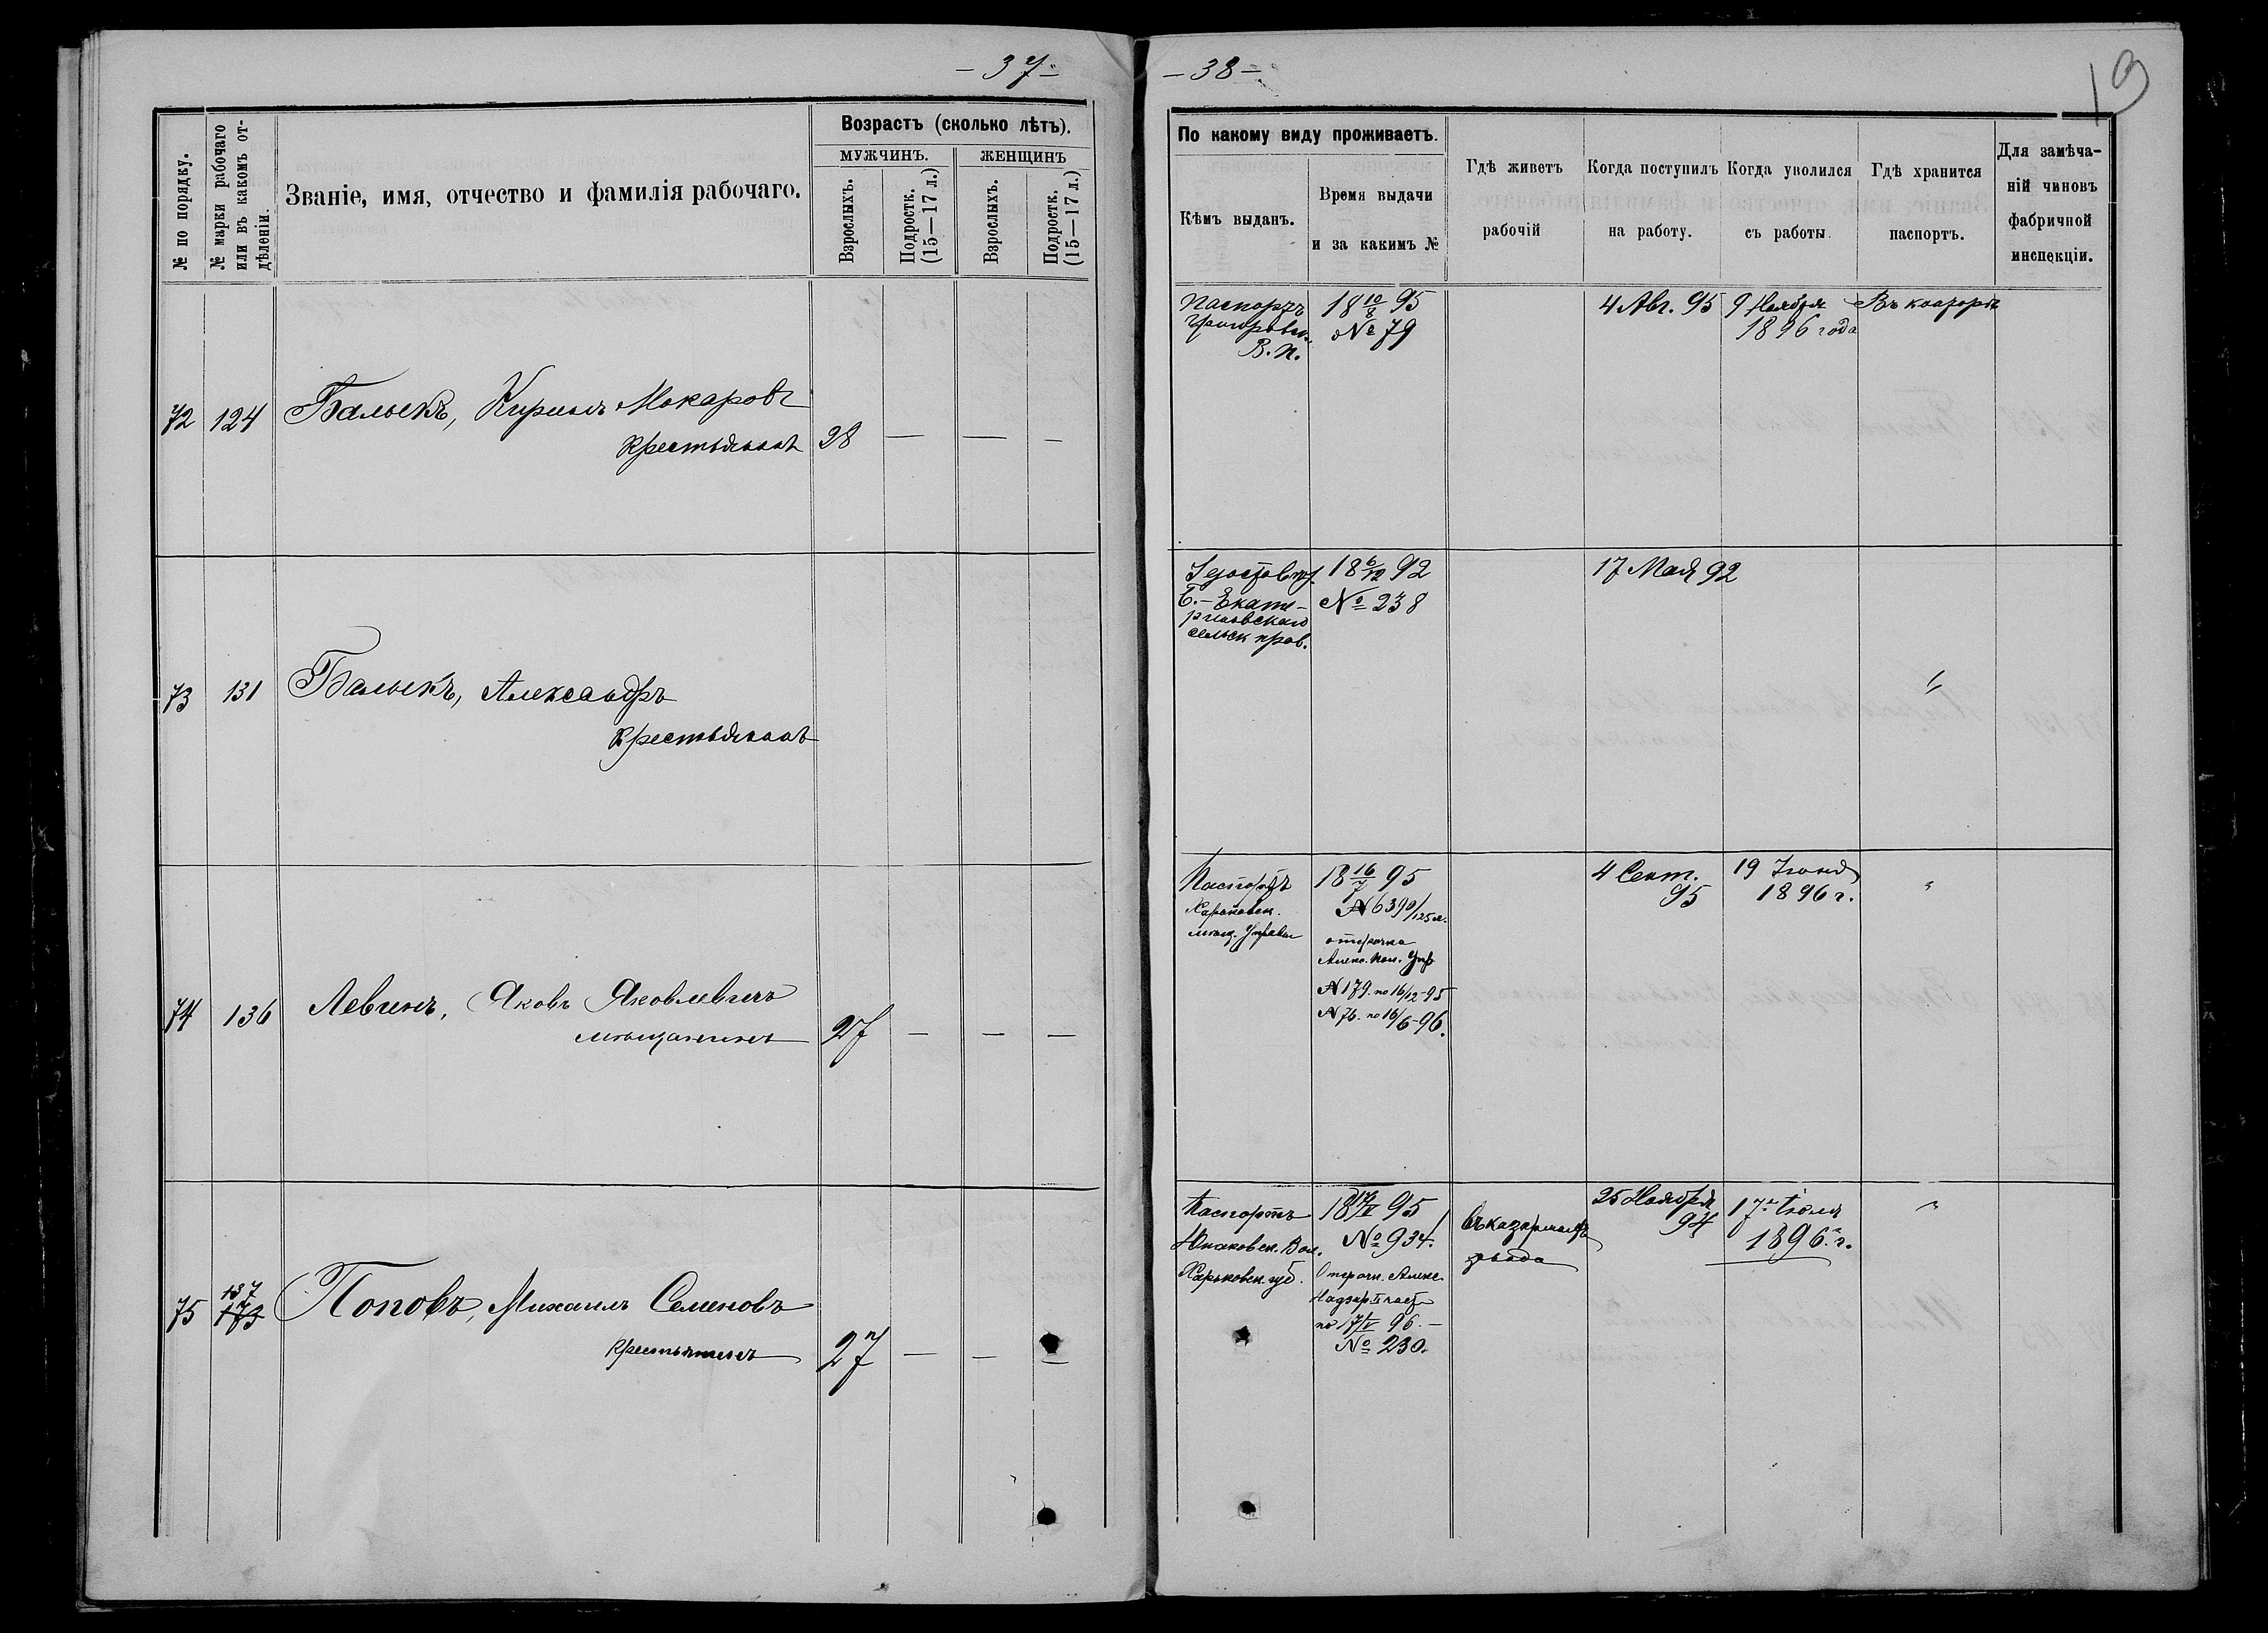 — 37 —
№ по порядку.
№ марки рабочаго
или въ какомъ от-
дѣленіи.
Званіе, имя, отчество и фамилія рабочаго.
Возрастъ (сколько лѣтъ).
МУЖЧИНЪ.
ЖЕНЩИНЪ
Взрослыхъ.
Подростк.
(15—17 л.)
Взрослыхъ.
Подростк.
(15—17 л.)
72 124 Балыкъ, Кирилъ Макаровъ
крестьянинъ 28 — — —
73 131 Балыкъ, Александръ
крестьянинъ
74 136 Левинъ, Яковъ Яковлевичъ
мѣщанинъ 27 — — —
137
75 173 Поповъ, Михаилъ Семеновъ
крестьянинъ 27 — — —
— 38 —
19
По какому виду проживаетъ.
Кѣмъ выданъ.
Время выдачи
и за какимъ №
Гдѣ живетъ
рабочій
Когда поступилъ
на работу.
Когда уволился
съ работы.
Гдѣ хранится
паспортъ.
Для замѣча-
ній чиновъ
фабричной
инспекціи.
Паспортъ
В. П.
18 10/8 95
№ 79
4 Авг. 95
9 Ноября
1896 года
Въ конторѣ
Е.-Екате-
риновскаго
сельск прав.
18 6/12 92
№ 238
17 Мая 92
"
Паспортъ
Харьковск.
мѣщ. Управы
18 16/7 95
№ 6390/125
отсрочка
Алекс. Пол. Упр
№ 179. по 16/12-95
№ 76. по 16/6-96.
4 Сент.
95
19 Іюня
1896 г.
"
Паспортъ
Юнаковск. Вол.
Харьковск. губ.
18 17/V 95
№ 934.
Отсроч. Алекс.
Надзир. II част
по 17/V 96. —
№ 230.
въ казармахъ
завода
25 Ноября
94
17 Іюля
1896 г.
"